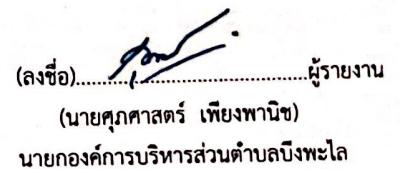 (ลงชื่อ)............................................ผู้รายงาน
(นายศุภศาสตร์ เพียงพานิช)
นายกองค์การบริหารส่วนตำบลบึงพะไล